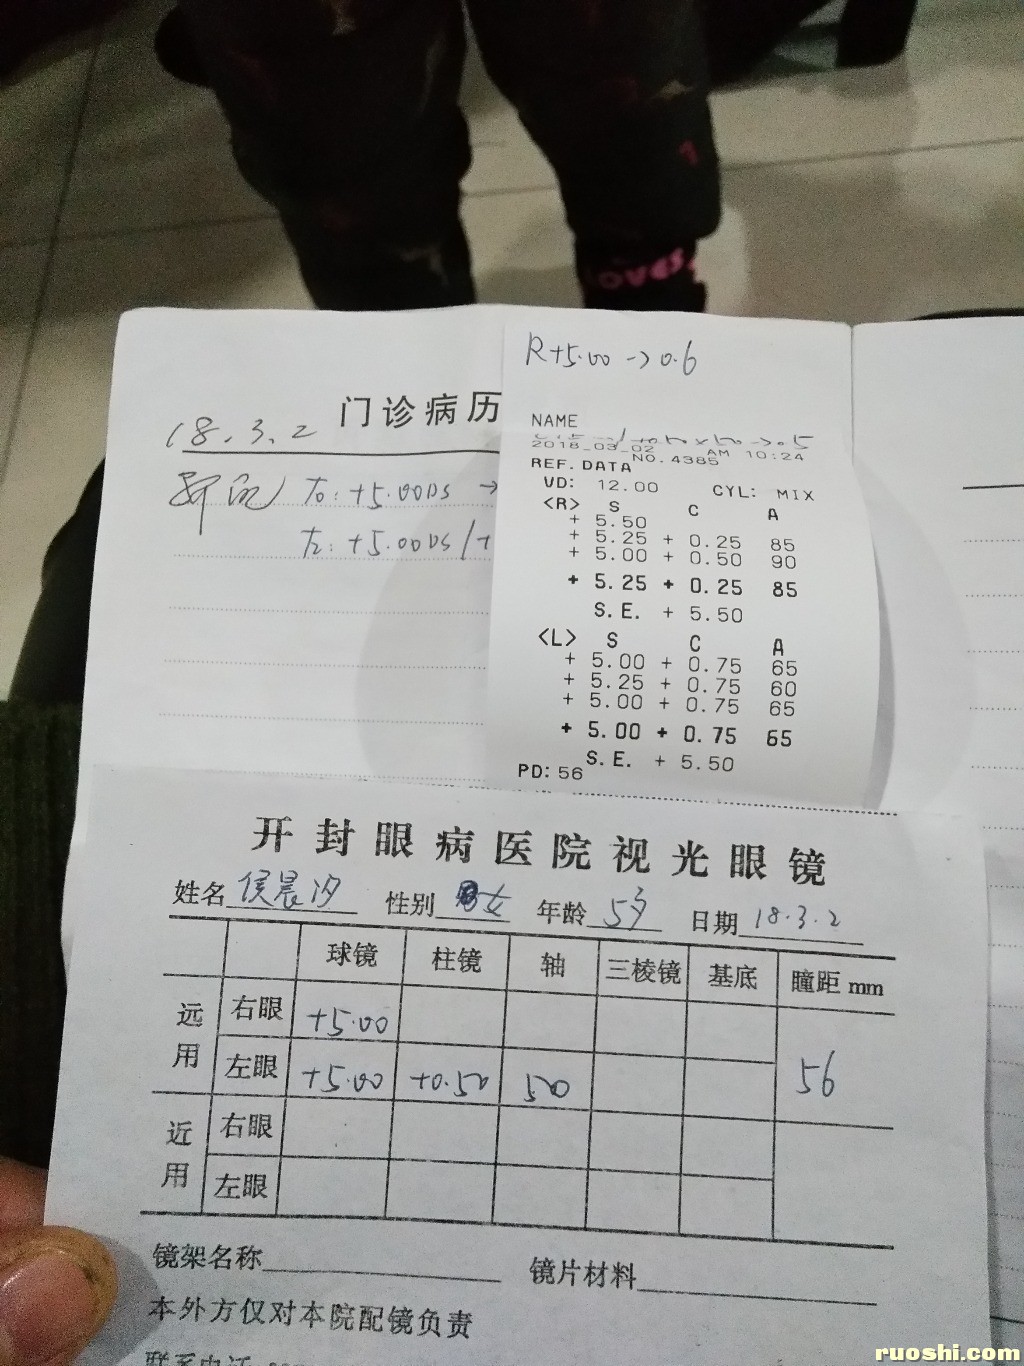 1
LOVES
R+5.00→0.6
门诊病历
18.3.2
NAME
+0.50×50→0.5
2018_03_02 AM 10:24
NO. 4385
REF. DATA
VD: 12.00 CYL: MIX
<R> S C A
+ 5.50
+ 5.25 + 0.25 85
+ 5.00 + 0.50 90
+ 5.25 + 0.25 85
S.E. + 5.50
<L> S C A
+ 5.00 + 0.75 65
+ 5.25 + 0.75 60
+ 5.00 + 0.75 65
+ 5.00 + 0.75 65
S.E. + 5.50
PD: 56
+5.00DS →
+5.00DS/+
开封眼病医院视光眼镜
姓名 侯晨汐 性别 女 年龄 5岁 日期 18.3.2
球镜 柱镜 轴 三棱镜 基底 瞳距 mm
远用 右眼 +5.00
左眼 +5.00 +0.50 50 56
近用 右眼
左眼
镜架名称 镜片材料
本外方仅对本院配镜负责
联系电话
ruoshi.com